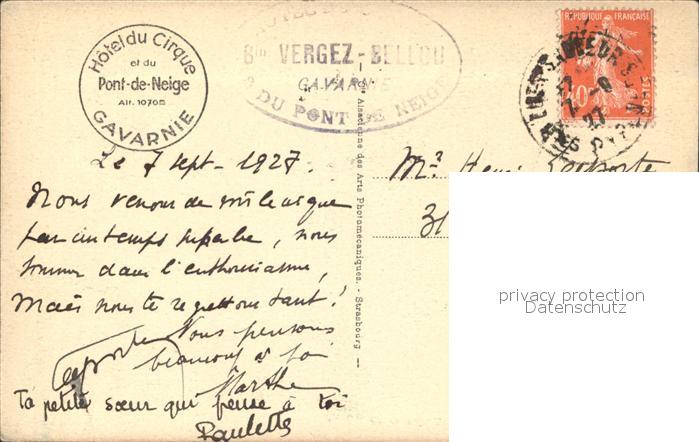 Hôtel du Cirque
et du
Pont-de-Neige
Alt. 1070m
GAVARNIE
Bin VERGEZ-BELLOU
GAVARNIE
DU PONT DE NEIGE
REPUBLIQUE FRANÇAISE
POSTES
40
Le 7 sept - 1927.
Nous venons de voir le cirque
par un temps superbe, nous
sommes dans l'enthousiasme,
Mais nous te regrettons tant!
Nous pensons
beaucoup à toi
Laporte
Marthe
Ta petite sœur qui pense à toi
Paulette
Alsacienne des Arts Photomécaniques. - Strasbourg
Mr Henri Laporte
31
privacy protection
Datenschutz